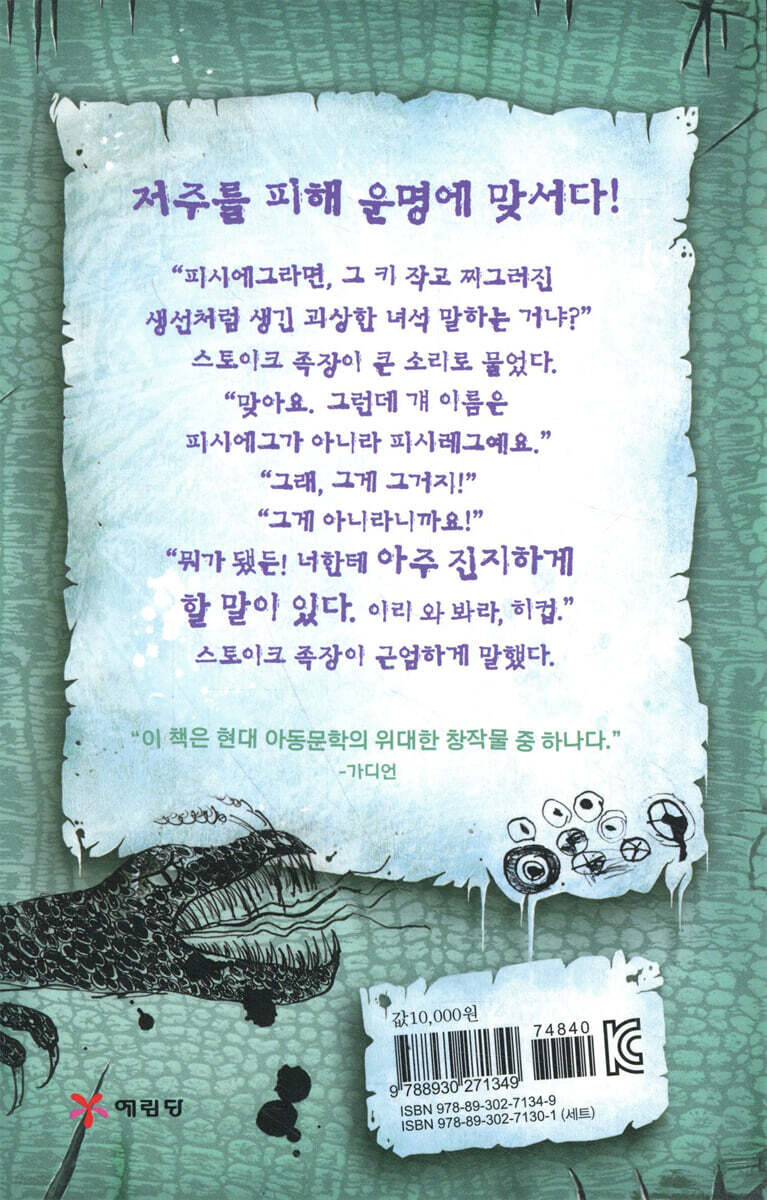 저주를 피해 운명에 맞서다!
“피시에그라면, 그 키 작고 찌그러진
생선처럼 생긴 괴상한 녀석 말하는 거냐?”
스토이크 족장이 큰 소리로 물었다.
“맞아요. 그런데 걔 이름은
피시에그가 아니라 피시레그예요.”
“그래, 그게 그거지!”
“그게 아니라니까요!”
“뭐가 됐든! 너한테 아주 진지하게
할 말이 있다. 이리 와 봐라, 히컵.”
스토이크 족장이 근엄하게 말했다.
“이 책은 현대 아동문학의 위대한 창작물 중 하나다.”
-가디언
값10,000원
74840
9 788930 271349
ISBN 978-89-302-7134-9
ISBN 978-89-302-7130-1 (세트)
예림당